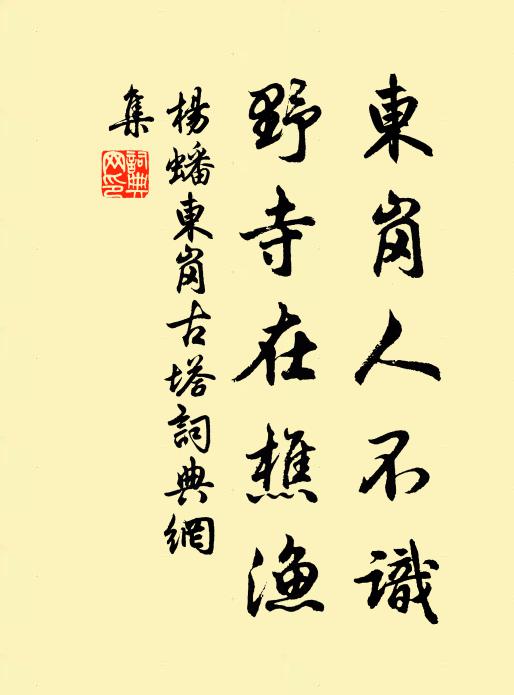 東岗人不識
野寺在樵漁
楊蟠東岗古塔詞典網
集
詞典
网印